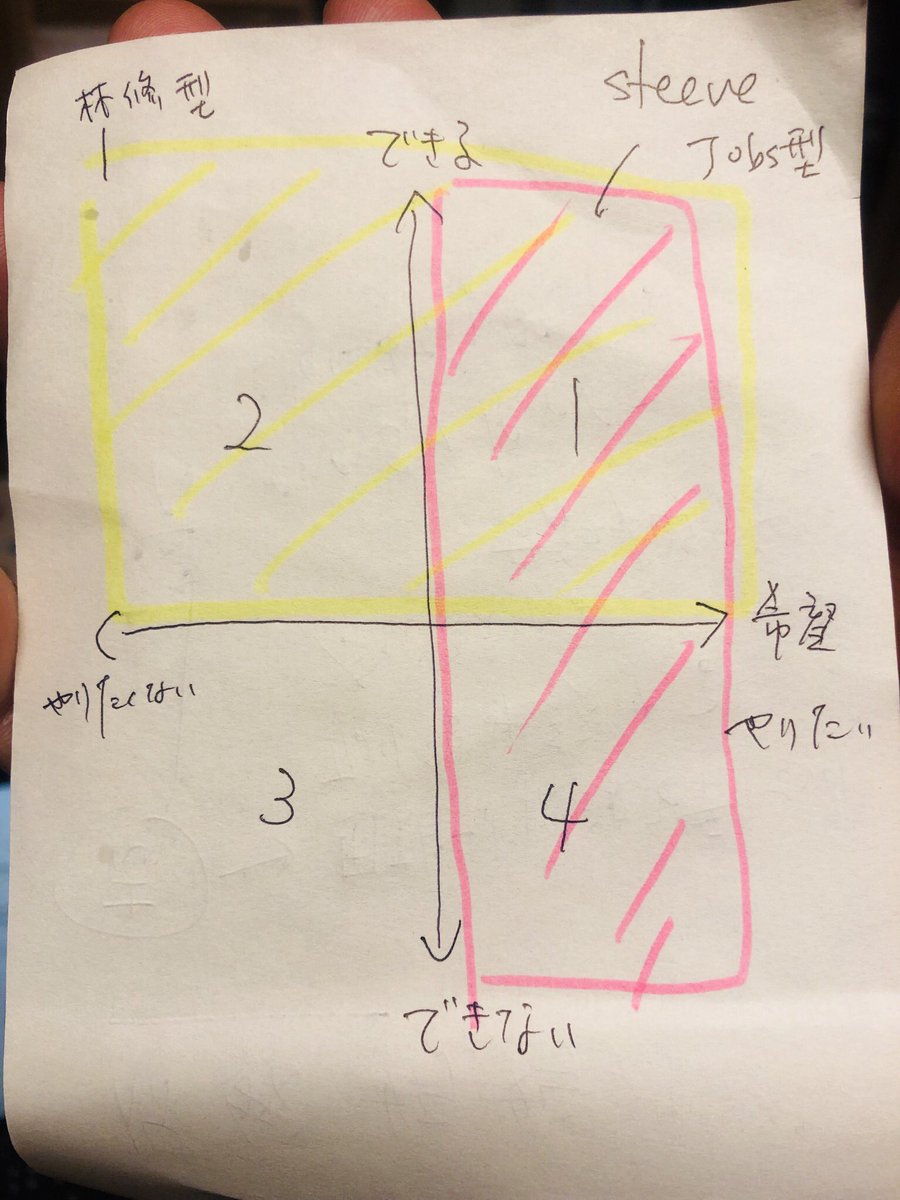 林修型
steeve
Jobs型
できる
2
1
希望
やりたくない
やりたい
3
4
できない